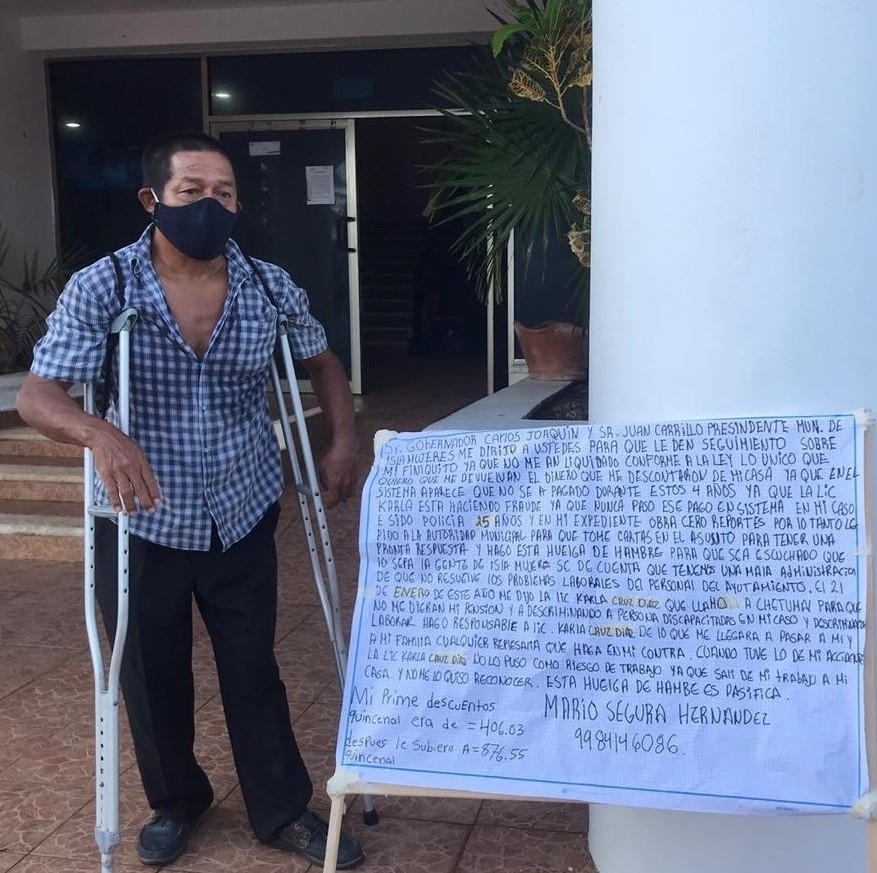 SR. GOBERNADOR CARLOS JOAQUIN Y SR. JUAN CARRILLO PRESINDENTE MUN. DE
ISLA MUJERES ME DIRIJO A USTEDES PARA QUE LE DEN SEGUIMIENTO SOBRE
MI FINIQUITO YA QUE NO ME AN LIQUIDADO CONFORME A LA LEY LO UNICO QUE
QUIERO QUE ME DEVUELVAN EL DINERO QUE ME DESCONTARON DE MI CASA YA QUE EN EL
SISTEMA APARECE QUE NO SE A PAGADO DURANTE ESTOS 4 AÑOS YA QUE LA LIC
KARLA ESTA HACIENDO FRAUDE YA QUE NUNCA PASO ESE PAGO EN SISTEMA EN MI CASO
E SIDO POLICIA 25 AÑOS Y EN MI EXPEDIENTE OBRA CERO REPORTES POR LO TANTO LE
PIDO A LA AUTORIDAD MUNICIPAL PARA QUE TOME CARTAS EN EL ASUNTO PARA TENER UNA
PRONTA RESPUESTA Y HAGO ESTA HUELGA DE HAMBRE PARA QUE SEA ESCUCHADO QUE
LO SEPA LA GENTE DE ISLA MUJERES SE DE CUENTA QUE TENEMOS UNA MALA ADMINISTRACION
DE QUE NO RESUELVE LOS PROBLEMAS LABORALES DEL PERSONAL DEL AYUTAMIENTO. EL 21
DE ENERO DE ESTE AÑO ME DIJO LA LIC KARLA CRUZ DIAZ QUE LLAMO A CHETUMAL PARA QUE
NO ME DIERAN MI PENSION Y A DESCRIMINANDO A PERSONA DISCAPACITADAS EN MI CASO Y DESCRIMINADA
LABORAR HAGO RESPONSABLE A LIC. KARLA CRUZ DIAZ DE LO QUE ME LLEGARA A PASAR A MI Y
A MI FAMILIA CUALQUIER REPRESARIA QUE HAGA EN MI CONTRA. CUANDO TUVE LO DE MI ACCIDENTE
LA LIC KARLA CRUZ DIAZ NO LO PUSO COMO RIESGO DE TRABAJO YA QUE SALI DE MI TRABAJO A MI
CASA. Y NO ME LO QUISO RECONOCER. ESTA HUELGA DE HAMBE ES PASIFICA.
MARIO SEGURA HERNANDEZ
9984146086.
Mi Prime descuentos
quincenal era de = 406.03
despues le Subiero A = 876.55
quincenal